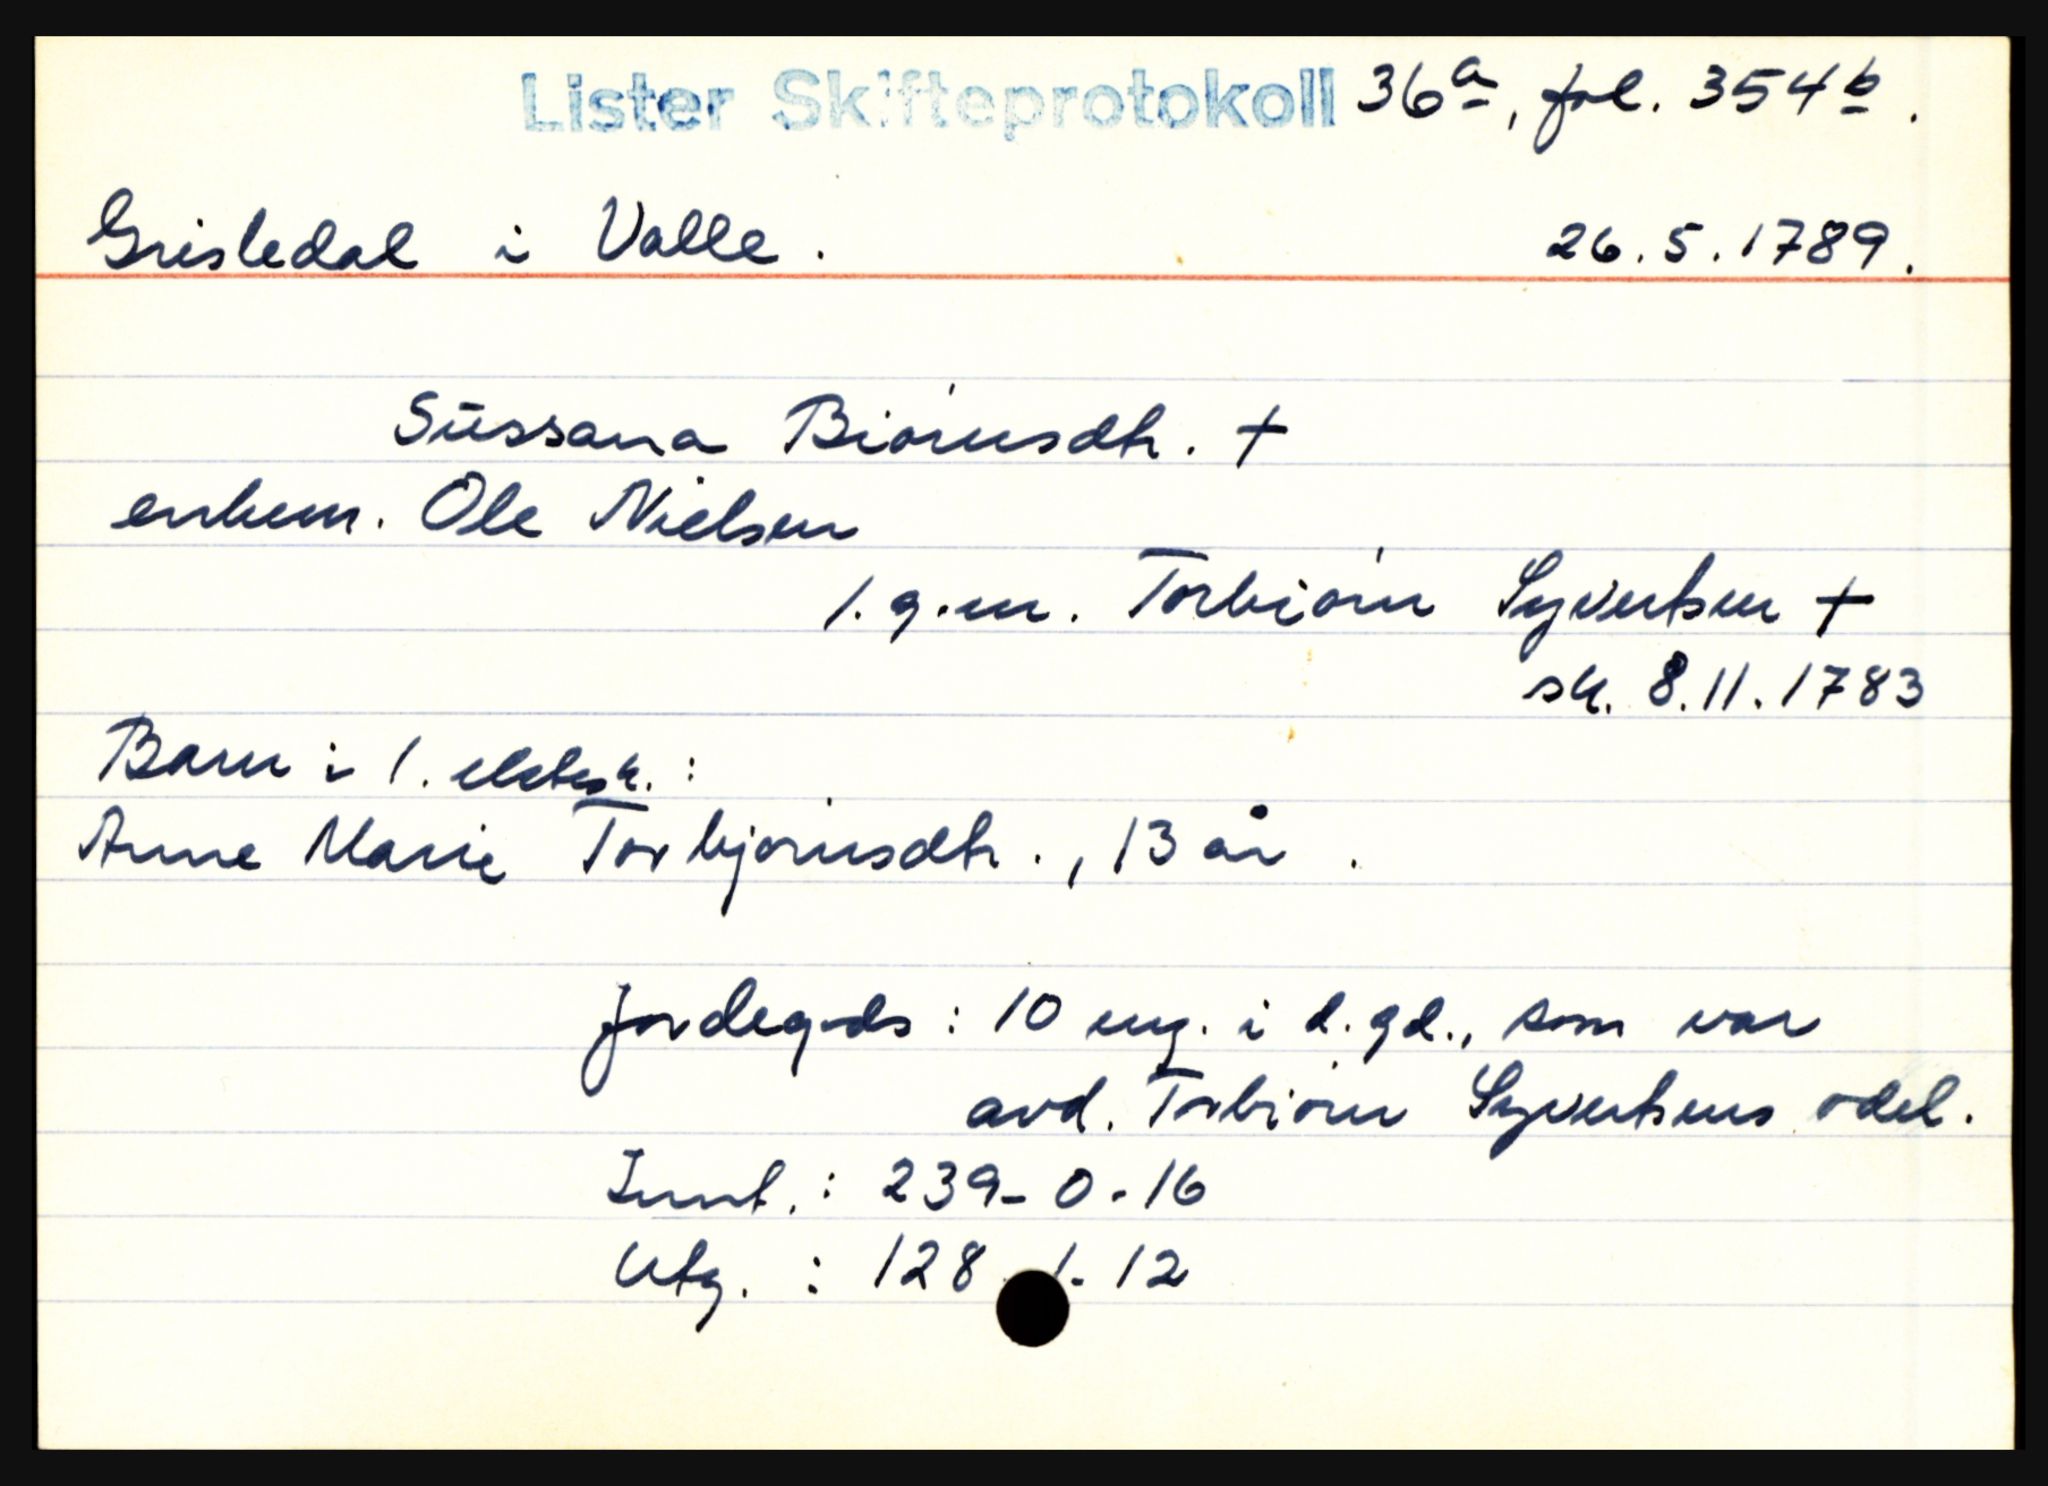 Lister Skifteprotokoll 36a, fol. 354b.
Grisledal i Valle. 26.5.1789.
Sussana Biørnsdtr. +
enkem. Ole Nielsen
1.g.m. Torbiørn Syvertsen +
sk. 8.11.1783
Barn i 1. ektesk.:
Anne Marie Torbjørnsdtr., 13 år.
Jordegods: 10 mg. i d.gd., som var
avd. Torbiørn Syvertsens odel.
Innt.: 239-0-16
Utg.: 128-1-12